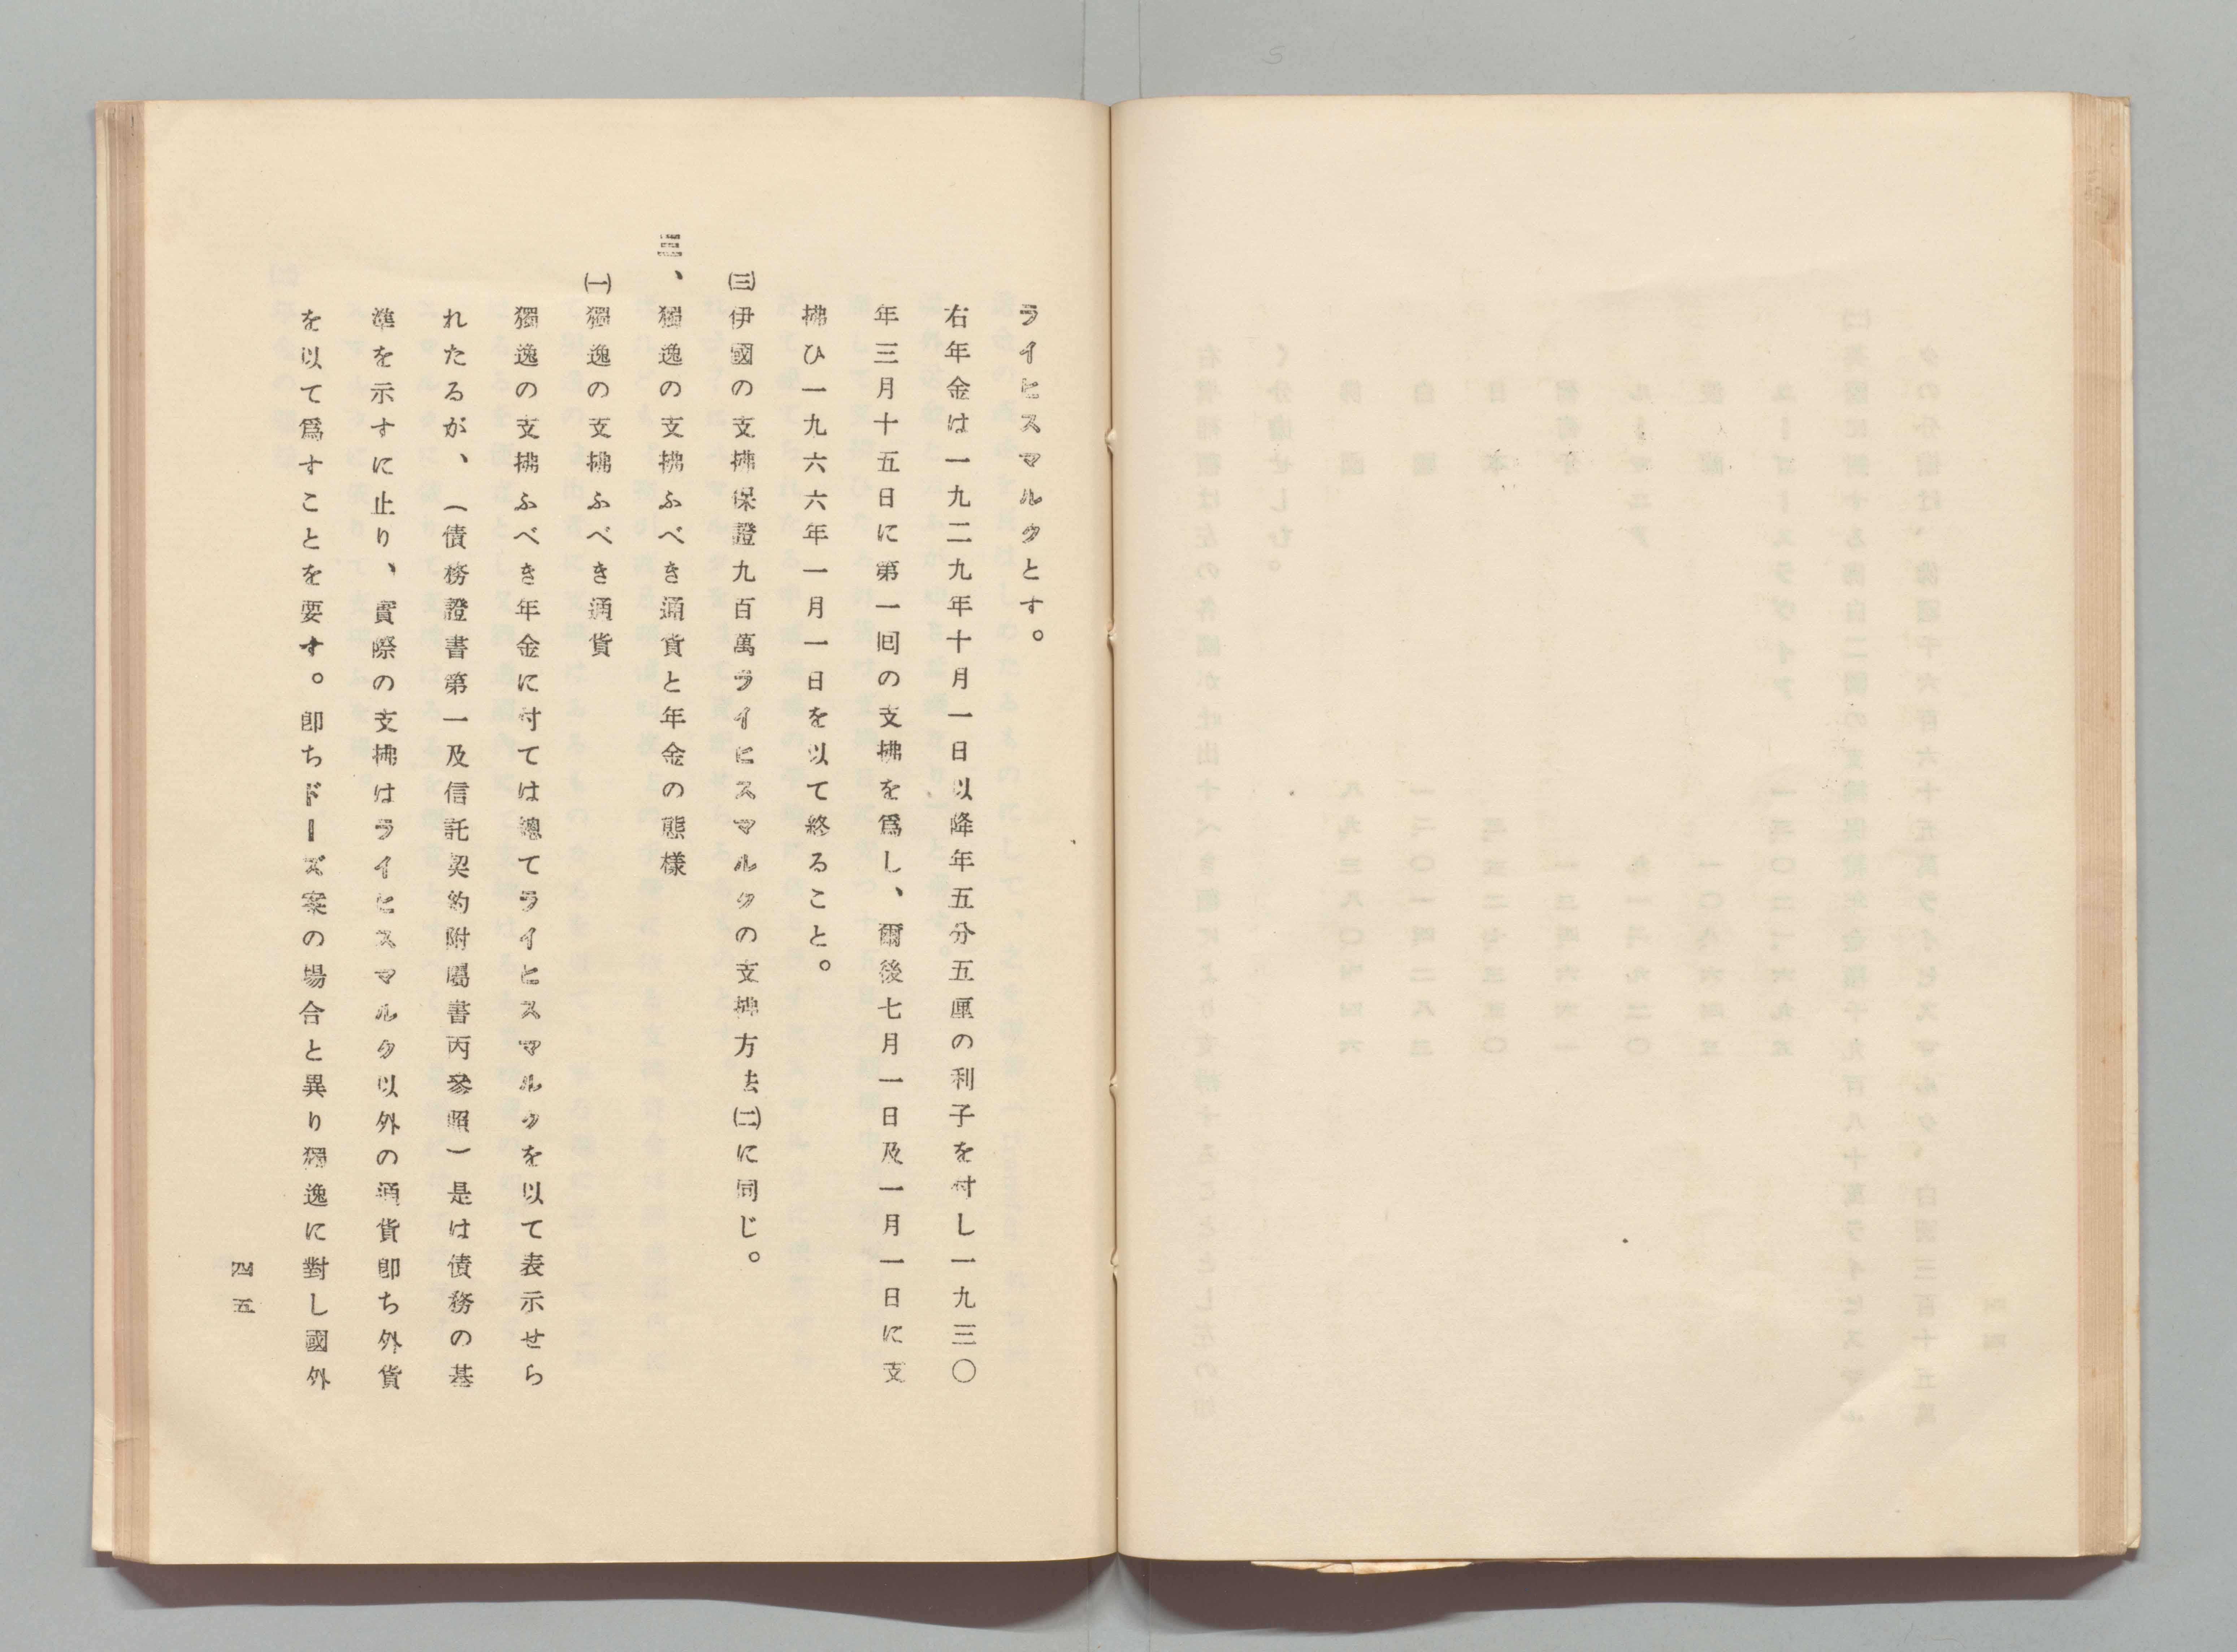 ライヒスマルクとす。
右年金は一九二九年十月一日以降年五分五厘の利子を付し一九三〇
年三月十五日に第一回の支拂を爲し、爾後七月一日及一月一日に支
拂ひ一九六六年一月一日を以て終ること。
㈢伊國の支拂保證九百萬ライヒスマルクの支拂方法㈡に同じ。
三、獨逸の支拂ふべき通貨と年金の態樣
㈠獨逸の支拂ふべき通貨
獨逸の支拂ふべき年金に付ては總てライヒスマルクを以て表示せら
れたるが、（債務證書第一及信託契約附屬書丙參照）是は債務の基
準を示すに止り、實際の支拂はライヒスマルク以外の通貨卽ち外貨
を以て爲すことを要す。卽ちドーズ案の場合と異り獨逸に對し國外
四五